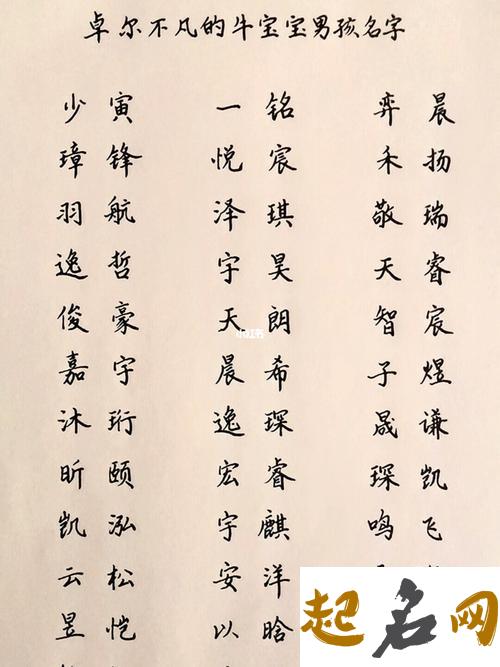 卓尔不凡的牛宝宝男孩名字
少寅 一铭 弈晨
璋锋 悦宸 禾扬
羽航 泽琪 敬瑞
逸哲 宇昊 天睿
俊豪 天朗 智宸
小红书
嘉宇 晨希 子煜
沐珩 逸琛 晟谦
昕颐 宏睿 琛凯
凯泓 宇麒 鸣飞
云松 安洋
昱恺 以晗
起名网